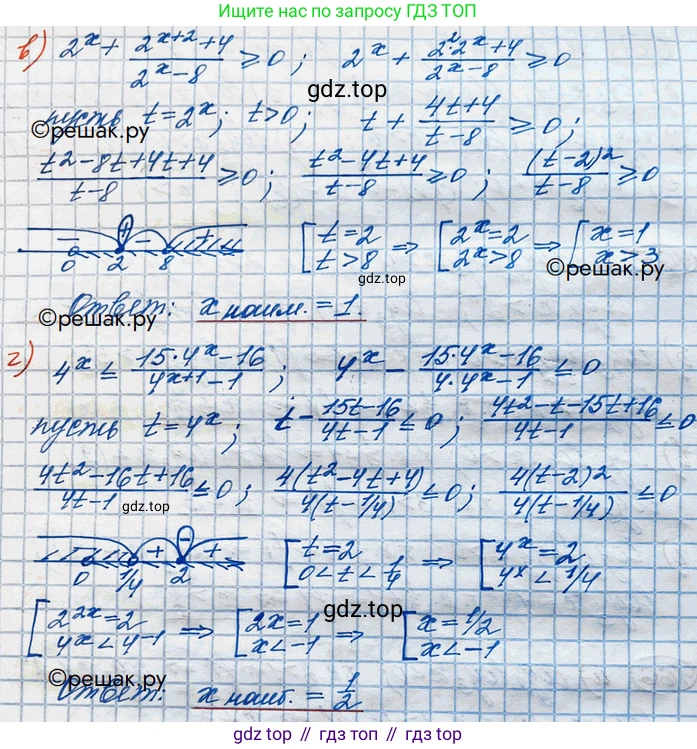 больше решений по запросу ГДЗ ТОП
в) 2^x + (2^(x+2)+4)/(2^x-8) ≥ 0; 2^x + (2^2·2^x+4)/(2^x-8) ≥ 0
gdz.top
пусть t=2^x; t>0; t + (4t+4)/(t-8) ≥ 0;
©решак.ру
(t^2-8t+4t+4)/(t-8) ≥ 0; (t^2-4t+4)/(t-8) ≥ 0; (t-2)^2/(t-8) ≥ 0
− + − +
0 2 8
[t=2 t>8 ⇒ [2^x=2 2^x>8 ⇒ [x=1 x>3
gdz.top ©решак.ру
Ответ: x наим. = 1.
©решак.ру
г) 4^x ≤ (15·4^x-16)/(4^(x+1)-1); 4^x - (15·4^x-16)/(4·4^x-1) ≤ 0
пусть t=4^x; t - (15t-16)/(4t-1) ≤ 0; (4t^2-t-15t+16)/(4t-1) ≤ 0
(4t^2-16t+16)/(4t-1) ≤ 0; 4(t^2-4t+4)/4(t-1/4) ≤ 0; 4(t-2)^2/4(t-1/4) ≤ 0
gdz.top
+ − +
0 1/4 2
[t=2 0<t<1/4 ⇒ [4^x=2 4^x<1/4
gdz.top
[2^2x=2 4^x<4^-1 ⇒ [2x=1 x<-1 ⇒ [x=1/2 x<-1
©решак.ру
Ответ: x наиб. = 1/2
gdz топ // гдз топ // gdz.top